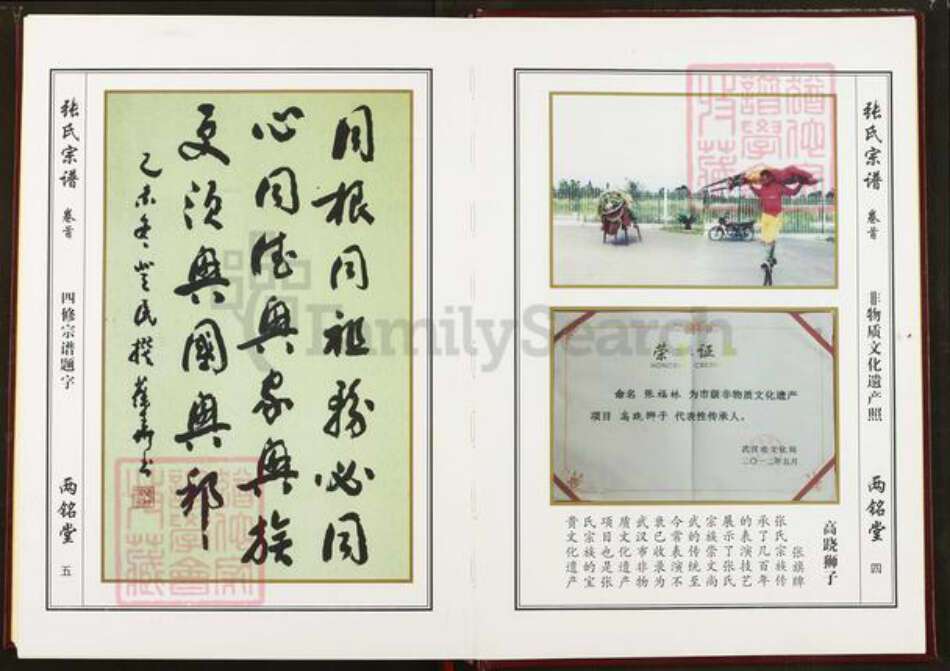 张氏宗谱
卷首
非物质文化遗产照
两铭堂
四
荣誉证
命名 张福林 为市级非物质文化遗产
项目 高跷狮子 代表性传承人。
武汉市文化局
二〇一二年五月
高跷狮子
张旗牌
张氏宗族传
承了几百年
的表演技艺
展示了张氏
宗族崇文尚
武的传统至
今常表演不
衰已收录为
武汉市非物
质文化遗产
项目也是张
氏宗族的宝
贵文化遗产
张氏宗谱
卷首
四修宗谱题字
两铭堂
五
同根同祖务必同
心同德兴家兴族
更须兴国兴邦
乙未冬
FamilySearch